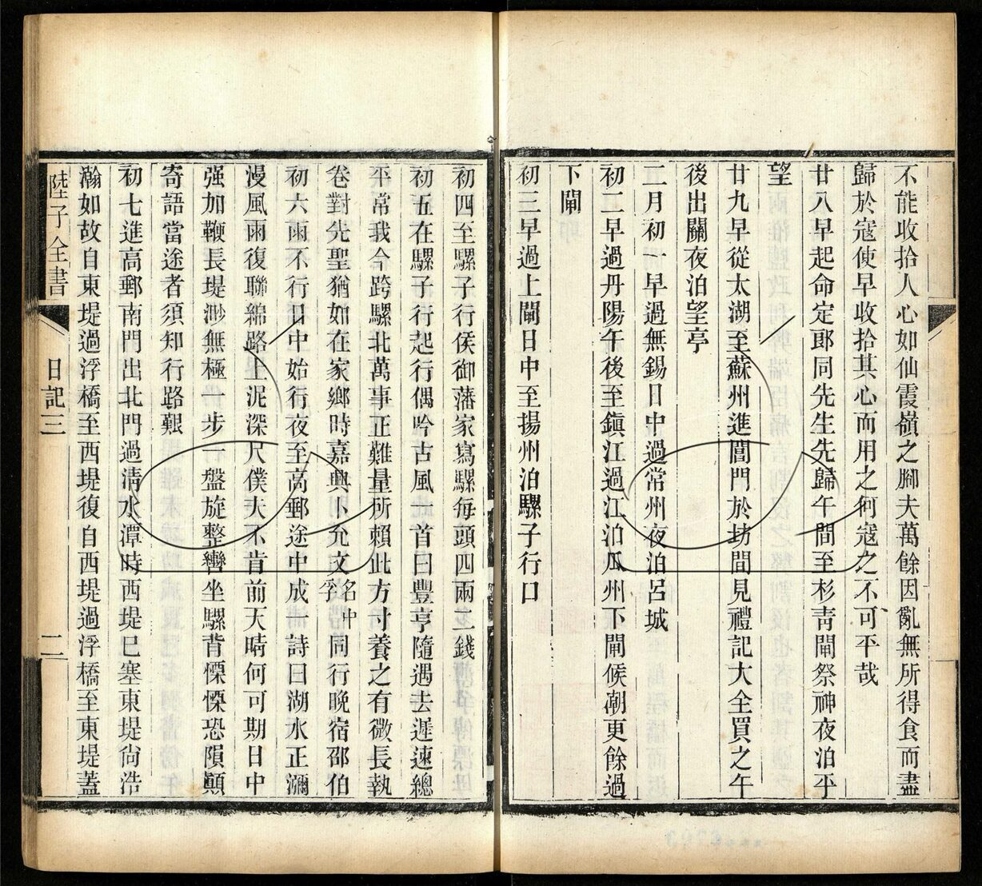 不能收拾人心如仙霞嶺之腳夫萬餘因亂無所得食而盡
歸於寇使早收拾其心而用之何寇之不可平哉
廿八早起命定郎同先生先歸午間至杉靑閘祭神夜泊平
望
廿九早從太湖至蘇州進閶門於坊間見禮記大全買之午
後出關夜泊望亭
二月初一早過無錫日中過常州夜泊呂城
初二早過丹陽午後至鎭江過江泊瓜州下閘候潮更餘過
下閘
初三早過上閘日中至揚州泊騾子行口
初四至騾子行侯御藩家寫騾每頭四兩二錢
初五在騾子行起行偶吟古風一首曰豐亨隨遇去遲速總
平常我今跨騾北萬事正難量所賴此方寸養之有微長執
卷對先聖猶如在家鄉時嘉興卜允文名沖孚同行晚宿邵伯
初六雨不行日中始行夜至高郵途中成一詩曰湖水正瀰
漫風雨復聯綿路上泥深尺僕夫不肯前天晴何可期日中
强加鞭長堤渺無極一步一盤旋整轡坐騾背慄慄恐隕顚
寄語當途者須知行路艱
初七進高郵南門出北門過淸水潭時西堤已塞東堤尙浩
瀚如故自東堤過浮橋至西堤復自西堤過浮橋至東堤蓋
陸子全書
日記三
二